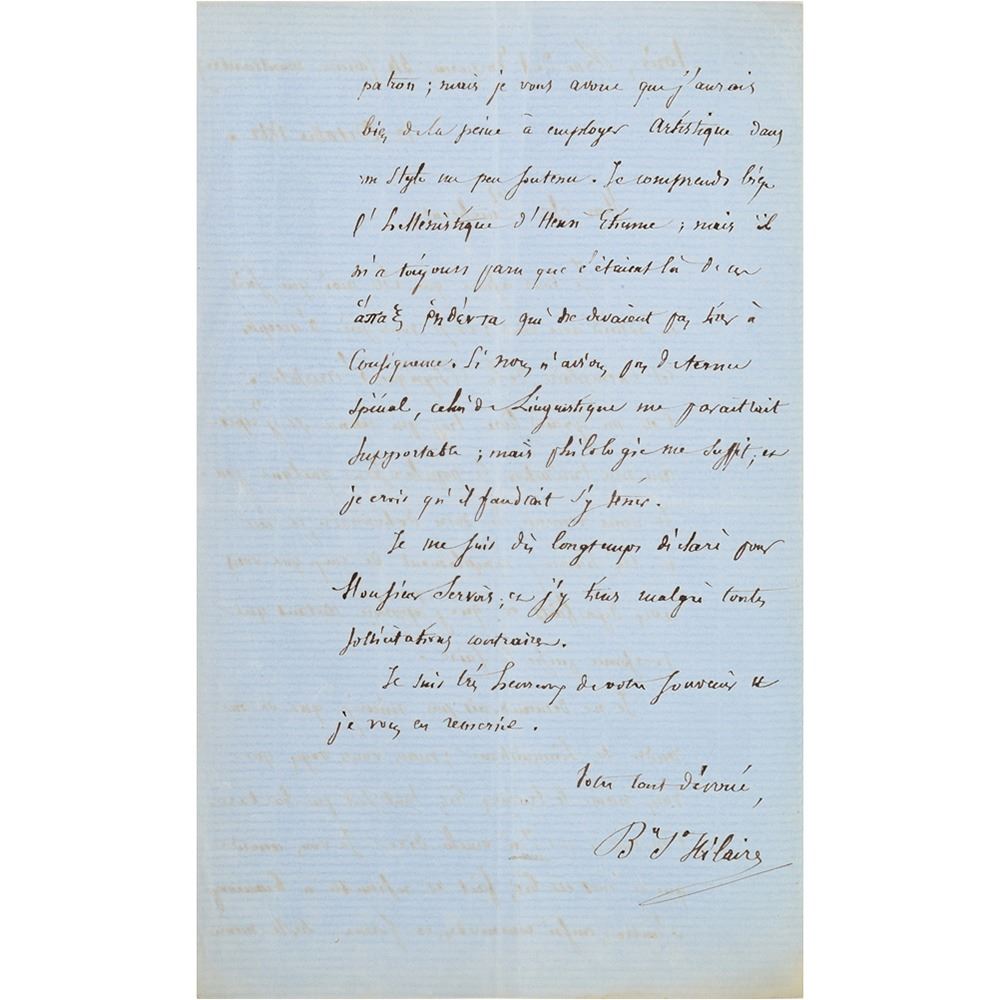 patron ; mais je vous avoue que j'aurais
bien de la peine à employer Artistique dans
un style un peu soutenu. Je comprends bien
l'hellénistique d'Henri Etienne ; mais il
m'a toujours paru que c'étaient là de ces
ἅπαξ ῥηθέντα qui ne devaient pas tirer à
Conséquence. Si nous n'avions pas de terme
spécial, celui de Linguistique me paraîtrait
supportable ; mais philologie me suffit, et
je crois qu'il faudrait s'y tenir.
Je me suis dès longtemps déclaré pour
Monsieur Servois ; et j'y tiens malgré toutes
sollicitations contraires.
Je suis très heureux de votre souvenir et
je vous en remercie.
Votre tout dévoué,
By St Hilaire